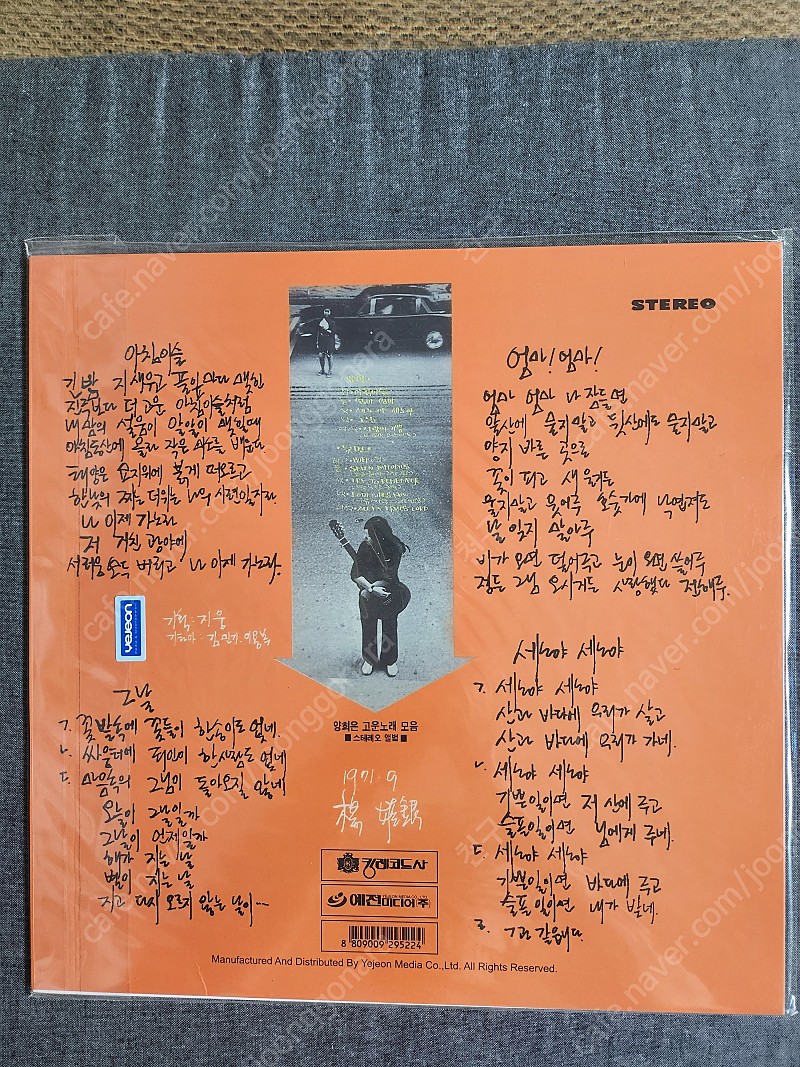 STEREO
아침이슬
긴 밤 지새우고 풀잎마다 맺힌
진주보다 더 고운 아침이슬처럼
내 맘의 설움이 알알이 맺힐때
아침동산에 올라 작은 미소를 배운다
태양은 묘지위에 붉게 떠오르고
한낮의 찌는 더위는 나의 시련일지라
나 이제 가노라
저 거친 광야에
서러움 모두 버리고 나 이제 가노라.
yejeon
기획 : 지웅
기타아 : 김민기·이용복
그날
ㄱ. 꽃밭속에 꽃들이 한송이도 없네.
ㄴ. 싸움터에 죄인이 한사람도 없네
ㄷ. 마음속의 그님이 돌아오질 않네
오늘이 그날일까
그날이 언제일까
해가 지는 날
별이 지는 날
지고 다시 오르지 않는 날이···
양희은 고운노래 모음
■ 스테레오 앨범 ■
1971. 9
楊姬銀
킹레코드사
예전미디어(주)
8 809009 295224
엄마! 엄마!
엄마 엄마 나 잠들면
앞산에 묻지말고 뒷산에도 묻지말고
양지 바른 곳으로
꽃이 피고 새 울거든
울지말고 웃어주 호숫가에 낙엽져도
날 잊지 말아주
비가 오면 덮어주고 눈이 오면 쓸어주
정든 그님 오시거든 사랑했다 전해주.
세노야 세노야
ㄱ. 세노야 세노야
산과 바다에 우리가 살고
산과 바다에 우리가 가네.
ㄴ. 세노야 세노야
기쁜일이면 저 산에 주고
슬픈일이면 님에게 주네.
ㄷ. 세노야 세노야
기쁜일이면 바다에 주고
슬픈일이면 내가 받네.
ㄹ. ㄱ과 같읍니다.
Manufactured And Distributed By Yejeon Media Co.,Ltd. All Rights Reserved.
cafe.naver.com/joonggonara